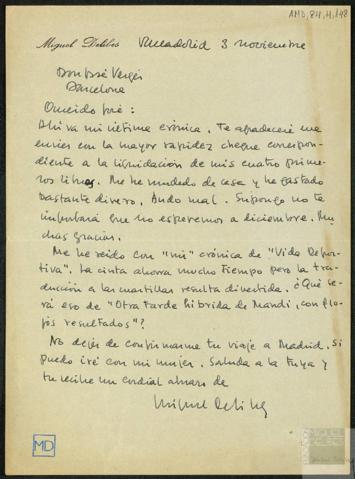 AMD, 84, 4, 48
Miguel Delibes
Valladolid 3 noviembre
Don José Vergés
Barcelona
Querido José:
Ahí va mi última crónica. Te agradeceré me
envíes con la mayor rapidez cheque correspon-
diente a la liquidación de mis cuatro prime-
ros libros. Me he mudado de casa y he gastado
bastante dinero. Ando mal. Supongo no te
importará que no esperemos a diciembre. Mu-
chas gracias.
Me he reído con "mi" crónica de "Vida Depor-
tiva". La cinta ahorra mucho tiempo pero la tra-
ducción a las cuartillas resulta divertida. ¿Qué se-
rá eso de "Otra tarde híbrida de Mandi, con flo-
jos resultados"?
No dejes de confirmarme tu viaje a Madrid. Si
puedo iré con mi mujer. Saluda a la tuya y
tu recibe un cordial abrazo de
Miguel Delibes
MD